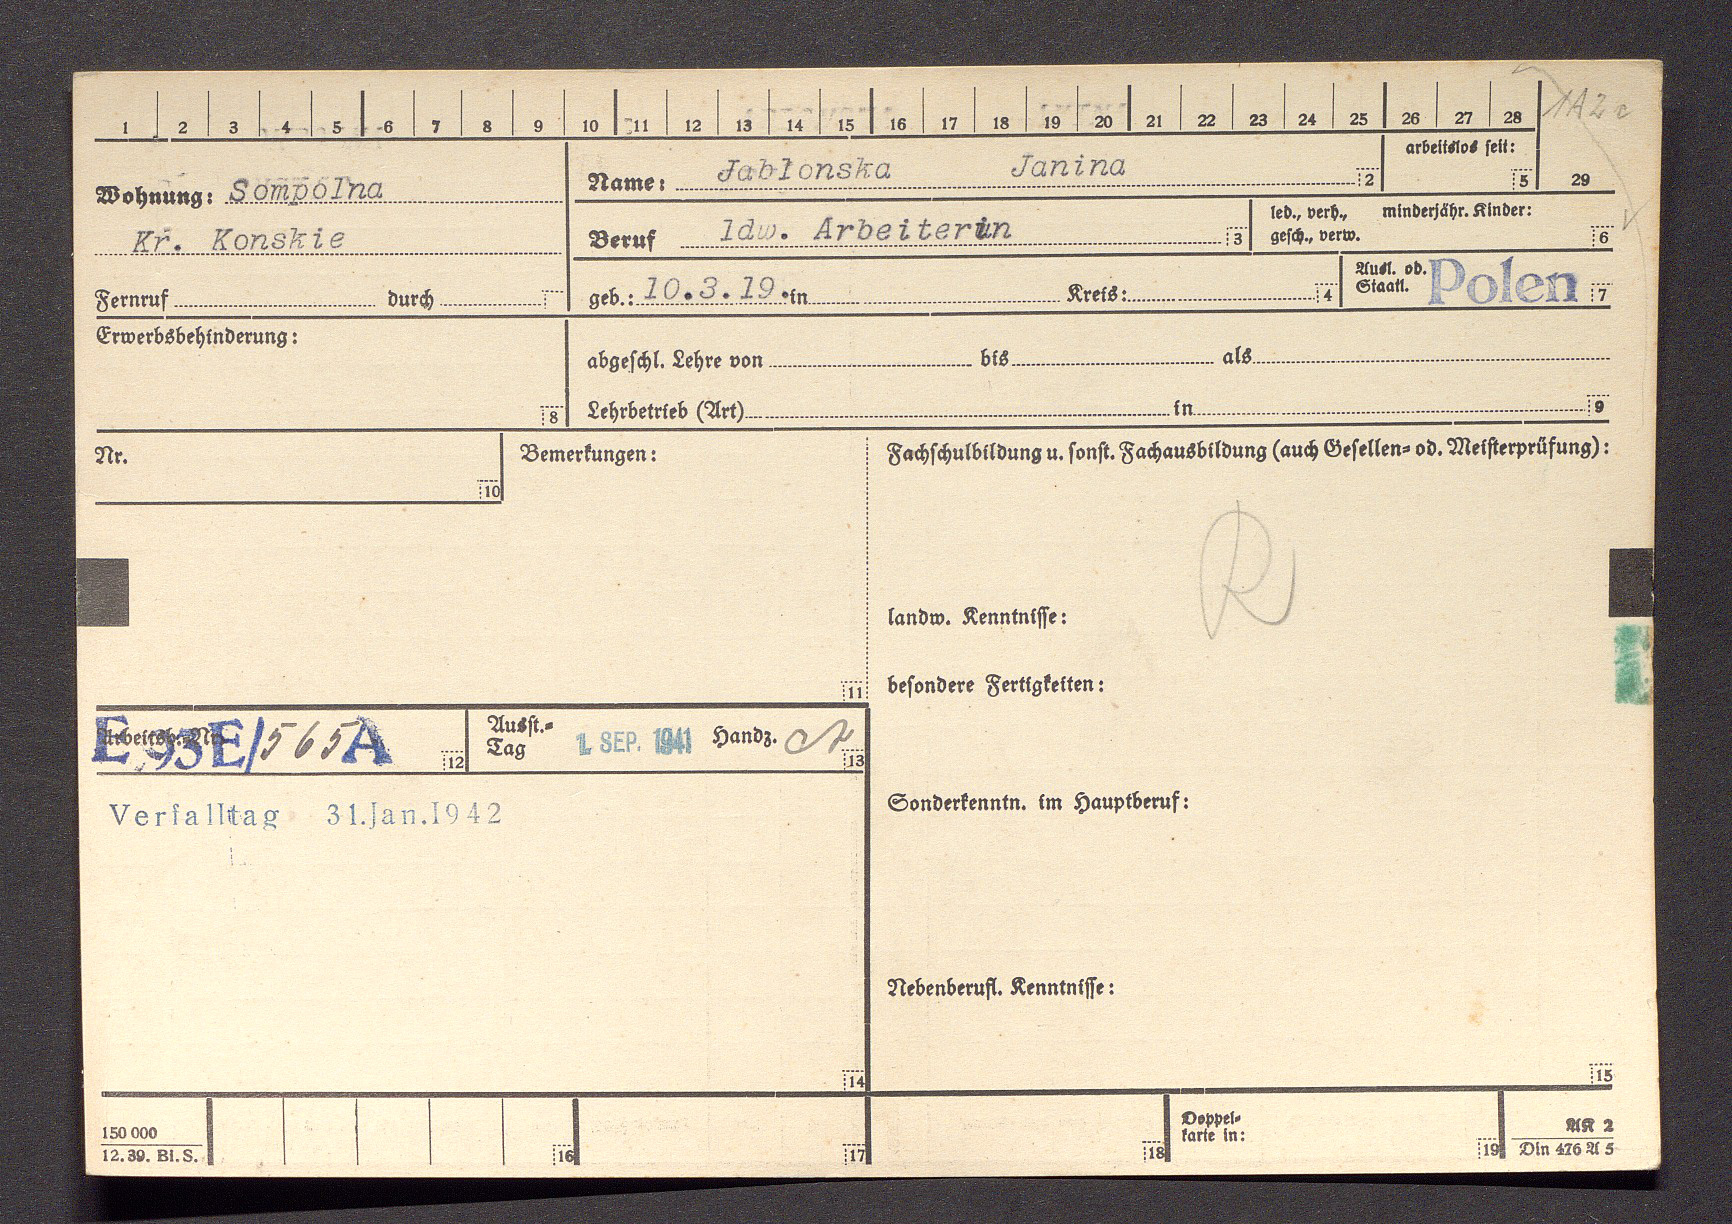 1 2 3 4 5 6 7 8 9 10 11 12 13 14 15 16 17 18 19 20 21 22 23 24 25 26 27 28 1A2c
29
Wohnung: Sompolna
Kr. Konskie
Fernruf durch
Name: Jablonska Janina 2
arbeitslos seit: 5
Beruf ldw. Arbeiterin 3
led., verh., minderjähr. Kinder:
gesch., verw. 6
geb.: 10.3.19. in Kreis: 4
Ausl. od. Polen
Staatl. 7
Erwerbsbehinderung:
8
abgeschl. Lehre von bis als
Lehrbetrieb (Art) in 9
Nr.
10
Bemerkungen:
11
Fachschulbildung u. sonst. Fachausbildung (auch Gesellen= od. Meisterprüfung):
R
landw. Kenntnisse:
besondere Fertigkeiten:
Sonderkenntn. im Hauptberuf:
Nebenberufl. Kenntnisse:
15
Arbeitsb.=Nr. E 93E/565A 12
Ausst.=
Tag 1. SEP. 1941 Handz. 13
Verfalltag 31.Jan.1942
14
150 000
12. 39. Bl. S.
16
17
18
Doppel=
karte in: 19
AK 2
Din 476 A 5